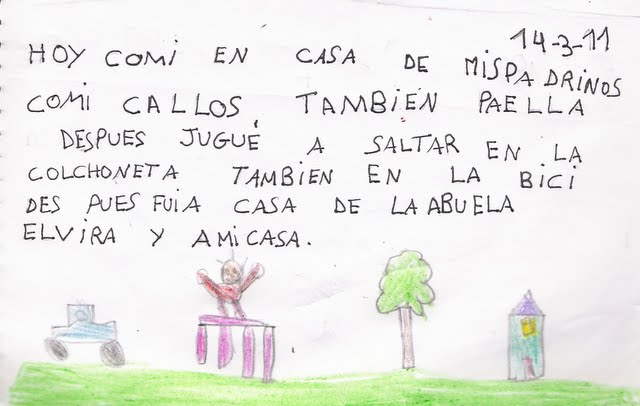 14-3-11
HOY COMI EN CASA DE MISPADRINOS
COMI CALLOS, TAMBIEN PAELLA
DESPUES JUGUÉ A SALTAR EN LA
COLCHONETA TAMBIEN EN LA BICI
DES PUES FUIA CASA DE LA ABUELA
ELVIRA Y AMICASA.